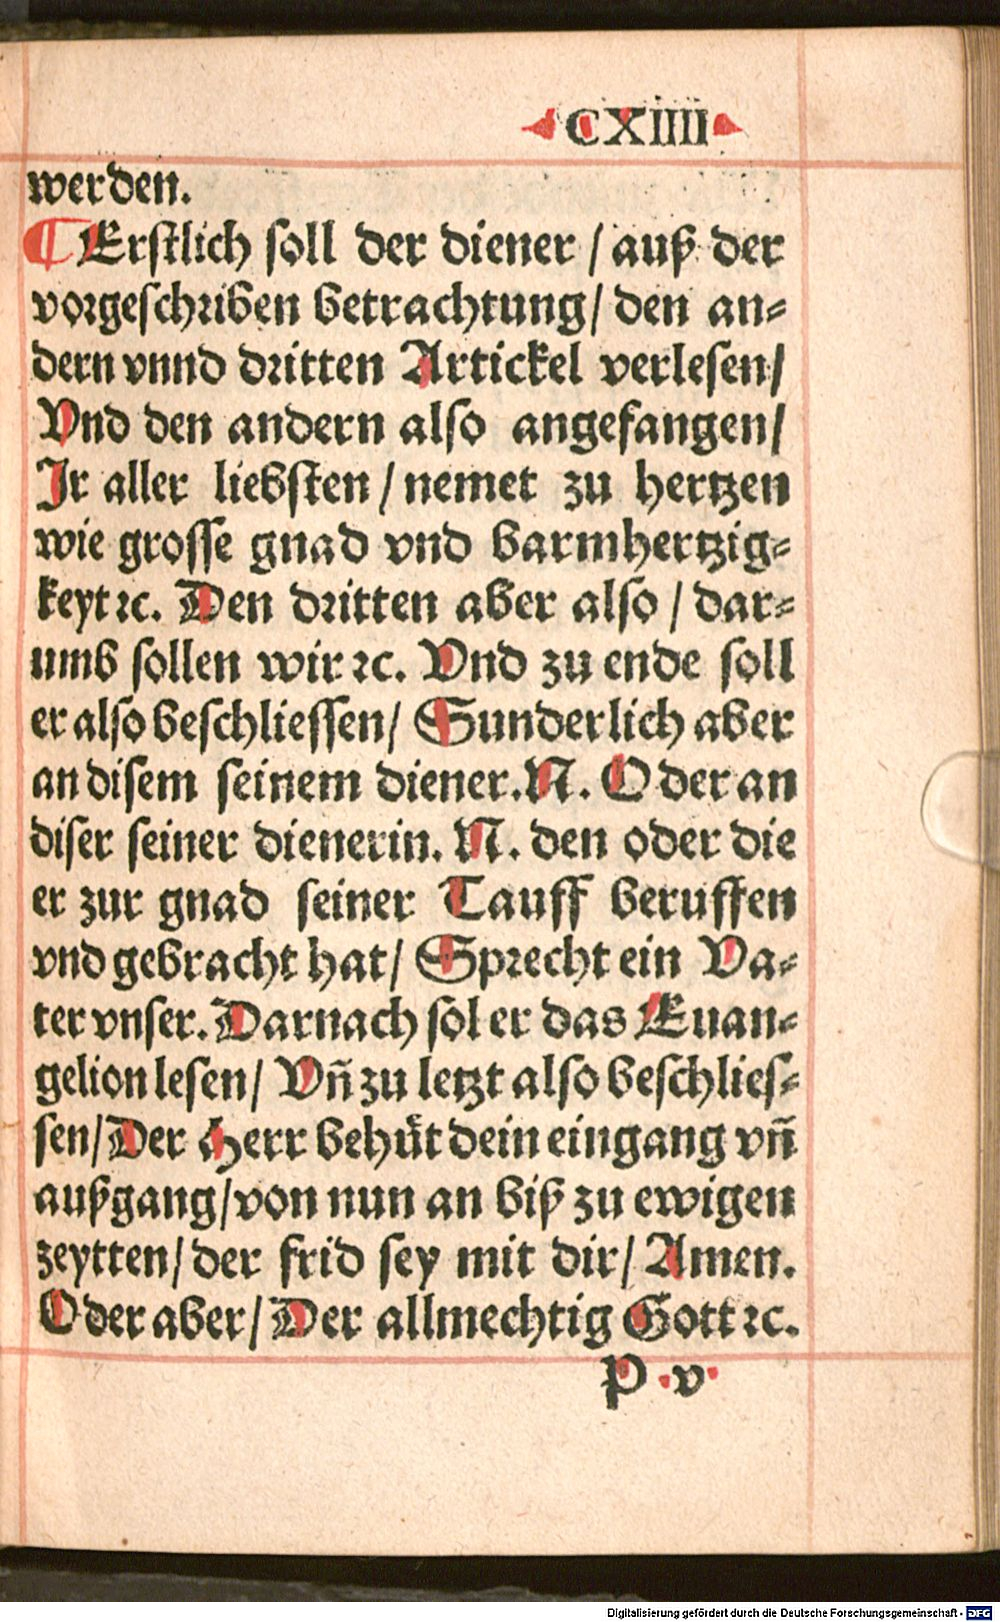 CXIIII
werden.
¶Erstlich soll der diener / auß der
vorgeschriben betrachtung / den an⸗
dern vnnd dritten Artickel verlesen /
Vnd den andern also angefangen /
Ir aller liebsten / nemet zu hertzen
wie grosse gnad vnd barmhertzig⸗
keyt ꝛc. Den dritten aber also / dar⸗
umb sollen wir ꝛc. Vnd zu ende soll
er also beschliessen / Sunderlich aber
an disem seinem diener. N. Oder an
diser seiner dienerin. N. den oder die
er zur gnad seiner Tauff beruffen
vnd gebracht hat / Sprecht ein Va⸗
ter vnser. Darnach sol er das Euan⸗
gelion lesen / Vñ zu letzt also beschlies⸗
sen / Der Herr behuͤt dein eingang vñ
außgang / von nun an biß zu ewigen
zeytten / der frid sey mit dir / Amen.
Oder aber / Der allmechtig Gott ꝛc.
P .v.
Digitalisierung gefördert durch die Deutsche Forschungsgemeinschaft - DFG